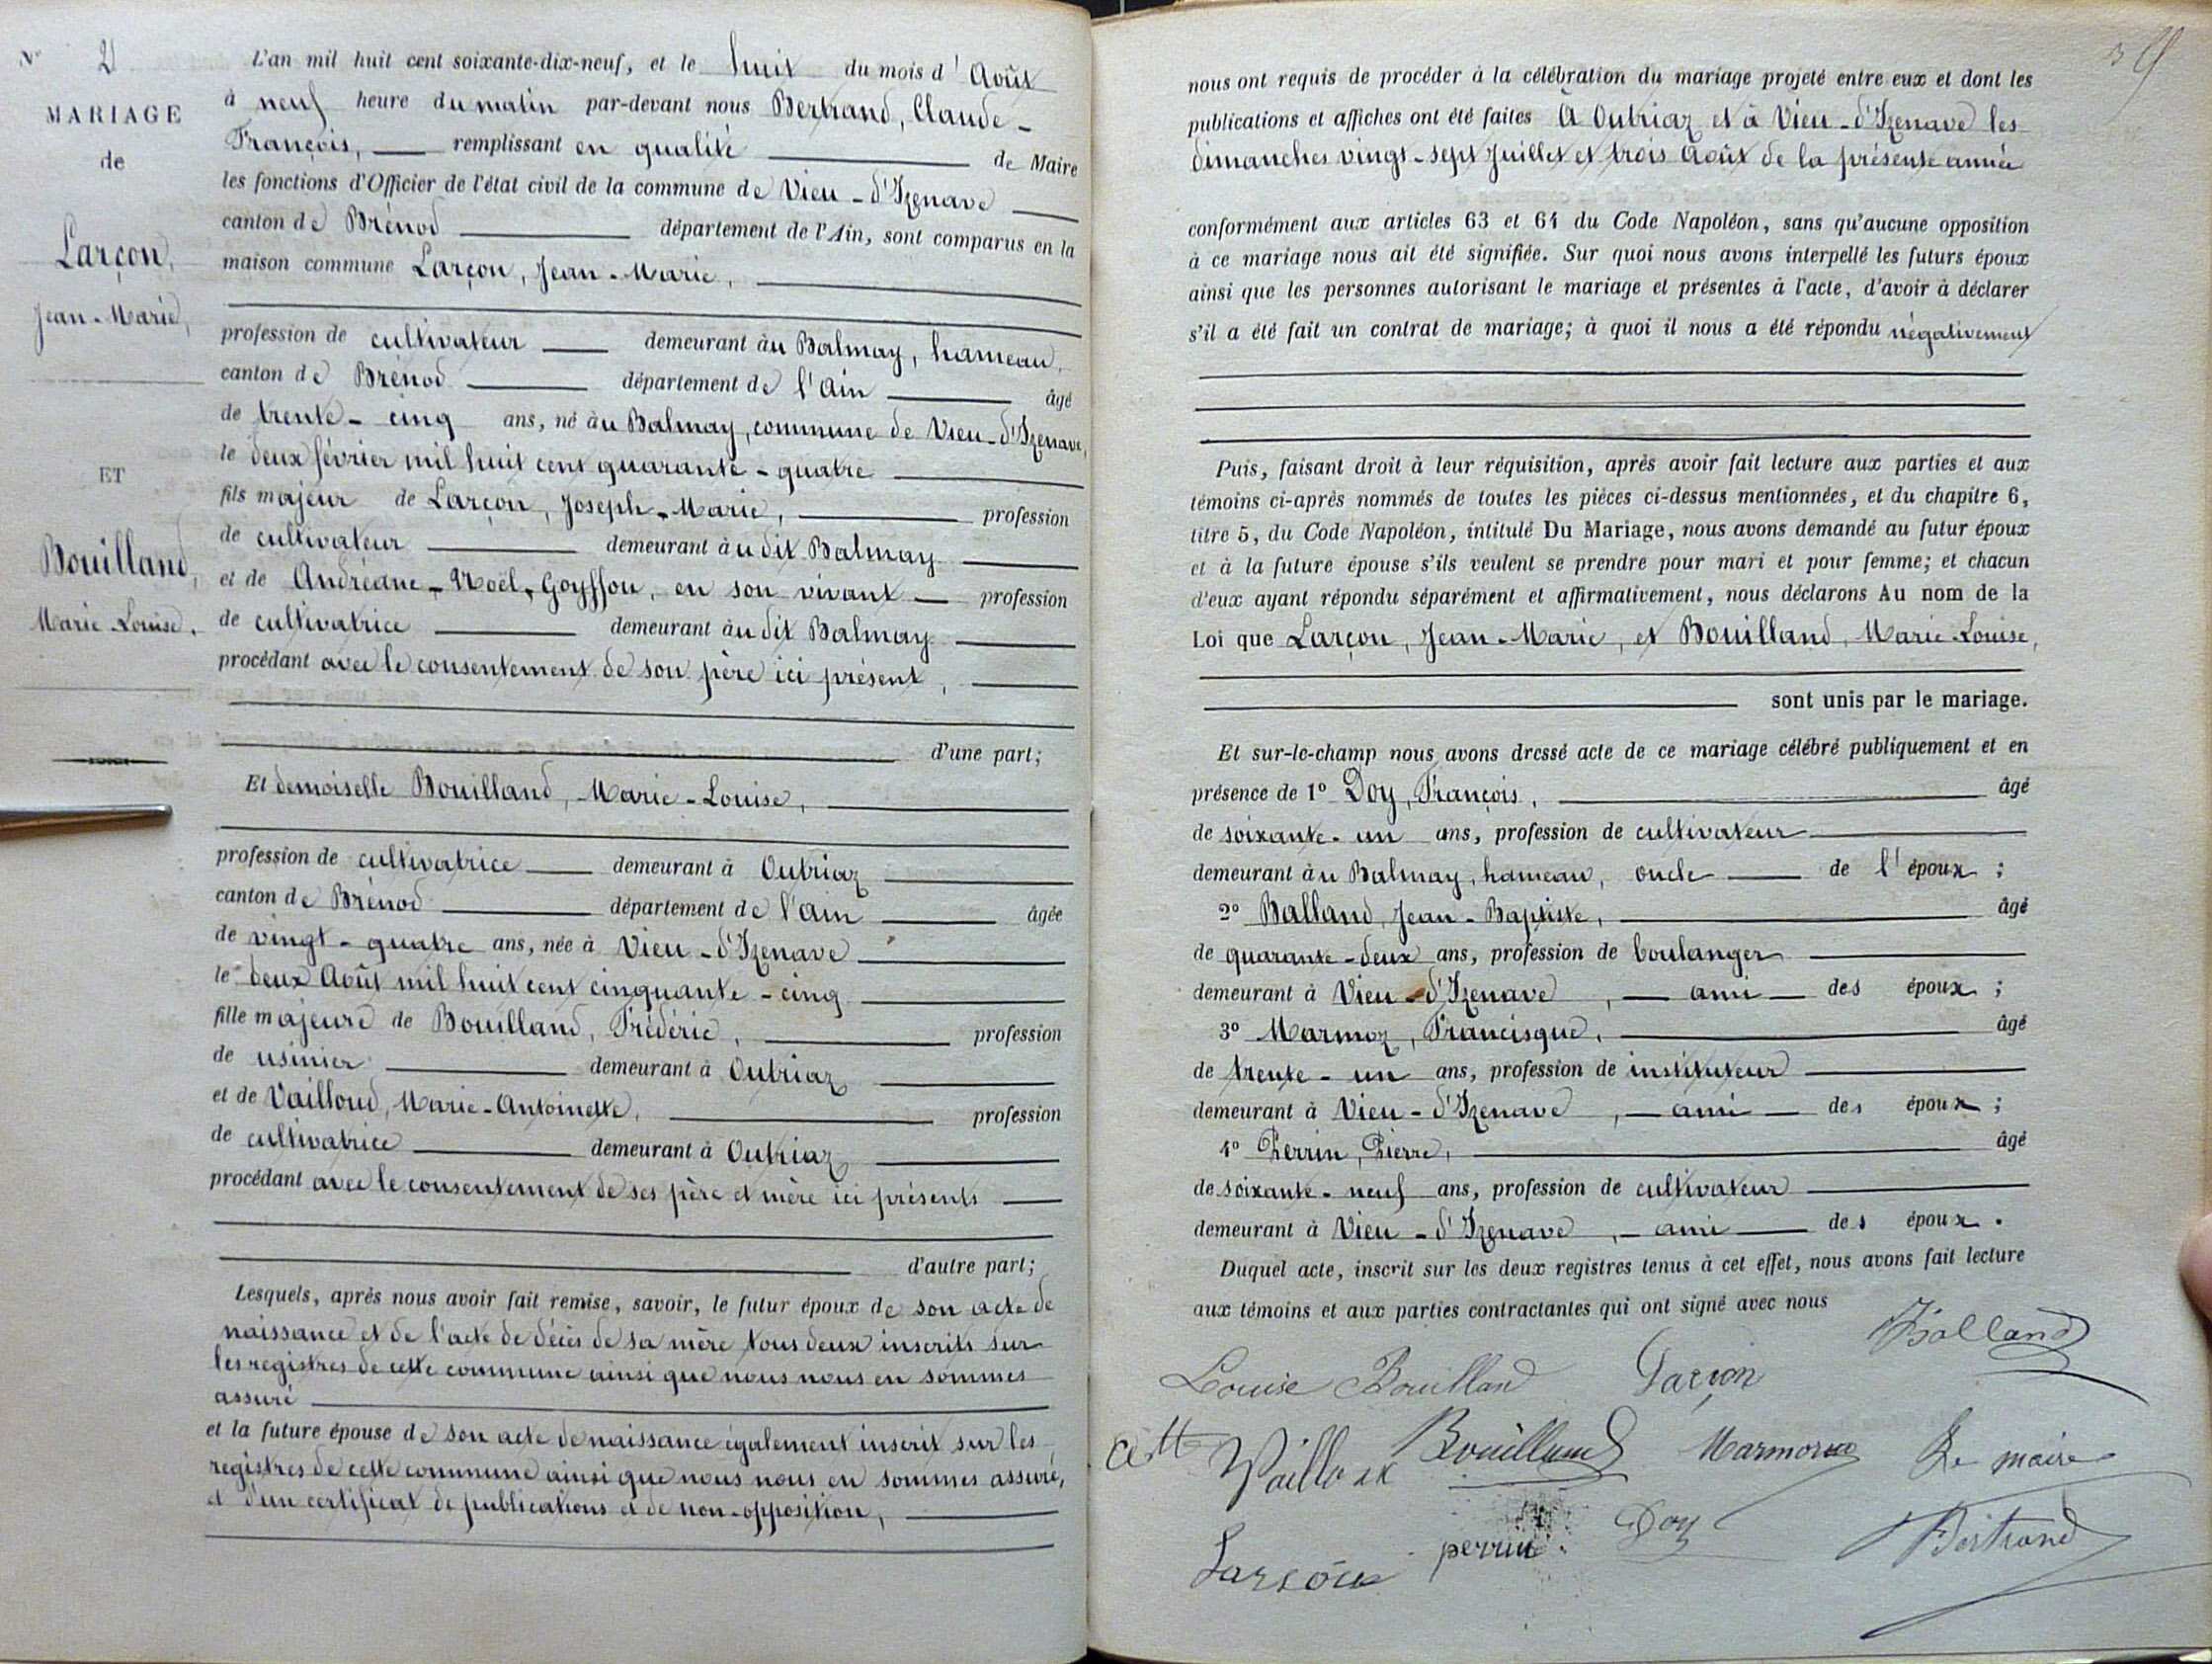 N° 21
MARIAGE
de
Larçon,
Jean-Marie,
ET
Bouilland,
Marie Louise.
L'an mil huit cent soixante-dix-neuf, et le huit du mois d'Août
à neuf heure du matin par-devant nous Bertrand, Claude-
François, remplissant en qualité de Maire
les fonctions d'Officier de l'état civil de la commune de Vieu-d'Izenave
canton de Brénod département de l'Ain, sont comparus en la
maison commune Larçon, Jean-Marie,
profession de cultivateur demeurant àu Balmay, hameau,
canton de Brénod département de l'Ain âgé
de trente-cinq ans, né àu Balmay, commune de Vieu-d'Izenave,
le deux février mil huit cent quarante-quatre
fils majeur de Larçon, Joseph-Marie, profession
de cultivateur demeurant àu dit Balmay
et de Andréane-Noël-Goyffon, en son vivant profession
de cultivatrice demeurant àu dit Balmay
procédant avec le consentement de son père ici présent,
d'une part;
Et demoiselle Bouilland, Marie-Louise,
profession de cultivatrice demeurant à Outriaz
canton de Brénod département de l'Ain âgée
de vingt-quatre ans, née à Vieu-d'Izenave
le deux Août mil huit cent cinquante-cinq
fille majeure de Bouilland, Frédéric, profession
de usinier demeurant à Outriaz
et de Vailloud, Marie-Antoinette, profession
de cultivatrice demeurant à Outriaz
procédant avec le consentement de ses père et mère ici présents
d'autre part;
Lesquels, après nous avoir fait remise, savoir, le futur époux de son acte de
naissance et de l'acte de décès de sa mère tous deux inscrits sur
les registres de cette commune ainsi que nous nous en sommes
assuré
et la future épouse de son acte de naissance également inscrit sur les
registres de cette commune ainsi que nous nous en sommes assuré,
et d'un certificat de publications et de non-opposition,
nous ont requis de procéder à la célébration du mariage projeté entre eux et dont les
publications et affiches ont été faites à Outriaz et à Vieu-d'Izenave les
dimanches vingt-sept Juillet et trois Août de la présente année
conformément aux articles 63 et 64 du Code Napoléon, sans qu'aucune opposition
à ce mariage nous ait été signifiée. Sur quoi nous avons interpellé les futurs époux
ainsi que les personnes autorisant le mariage et présentes à l'acte, d'avoir à déclarer
s'il a été fait un contrat de mariage; à quoi il nous a été répondu négativement
Puis, faisant droit à leur réquisition, après avoir fait lecture aux parties et aux
témoins ci-après nommés de toutes les pièces ci-dessus mentionnées, et du chapitre 6,
titre 5, du Code Napoléon, intitulé Du Mariage, nous avons demandé au futur époux
et à la future épouse s'ils veulent se prendre pour mari et pour femme; et chacun
d'eux ayant répondu séparément et affirmativement, nous déclarons Au nom de la
Loi que Larçon, Jean-Marie, et Bouilland, Marie-Louise,
sont unis par le mariage.
Et sur-le-champ nous avons dressé acte de ce mariage célébré publiquement et en
présence de 1° Doy, François, âgé
de soixante-un ans, profession de cultivateur
demeurant àu Balmay, hameau, oncle de l'époux;
2° Balland, Jean-Baptiste, âgé
de quarante-deux ans, profession de boulanger
demeurant à Vieu-d'Izenave, ami des époux;
3° Marmoz, Francisque, âgé
de trente-un ans, profession de instituteur
demeurant à Vieu-d'Izenave, ami des époux;
4° Perrin, Pierre, âgé
de soixante-neuf ans, profession de cultivateur
demeurant à Vieu-d'Izenave, ami des époux.
Duquel acte, inscrit sur les deux registres tenus à cet effet, nous avons fait lecture
aux témoins et aux parties contractantes qui ont signé avec nous
Balland
Louise Bouilland Larçon
Bouilland Marmoz Le maire
Larçon perrin Doy Bertrand